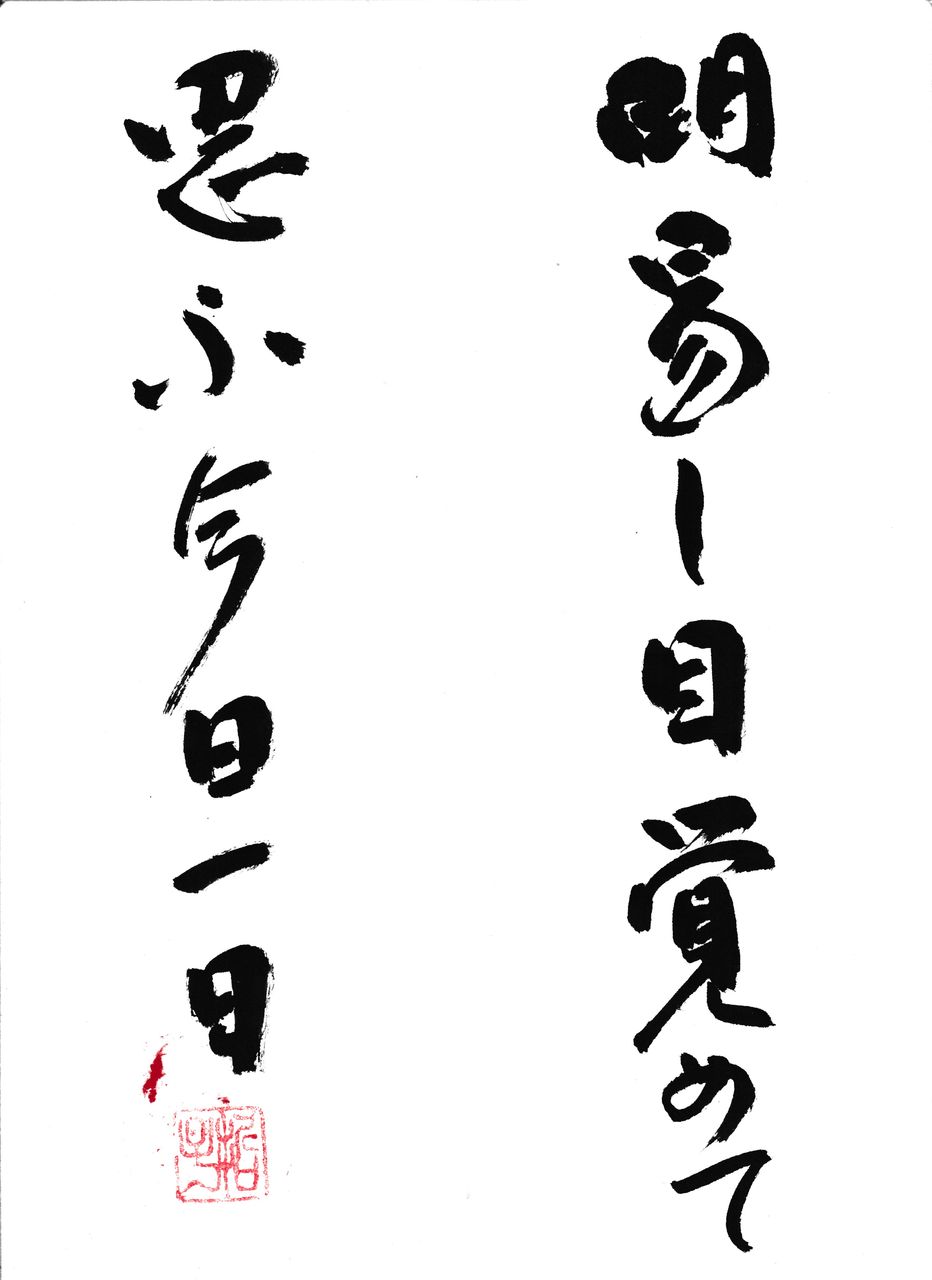 明易し目覚めて
思ふ今日一日